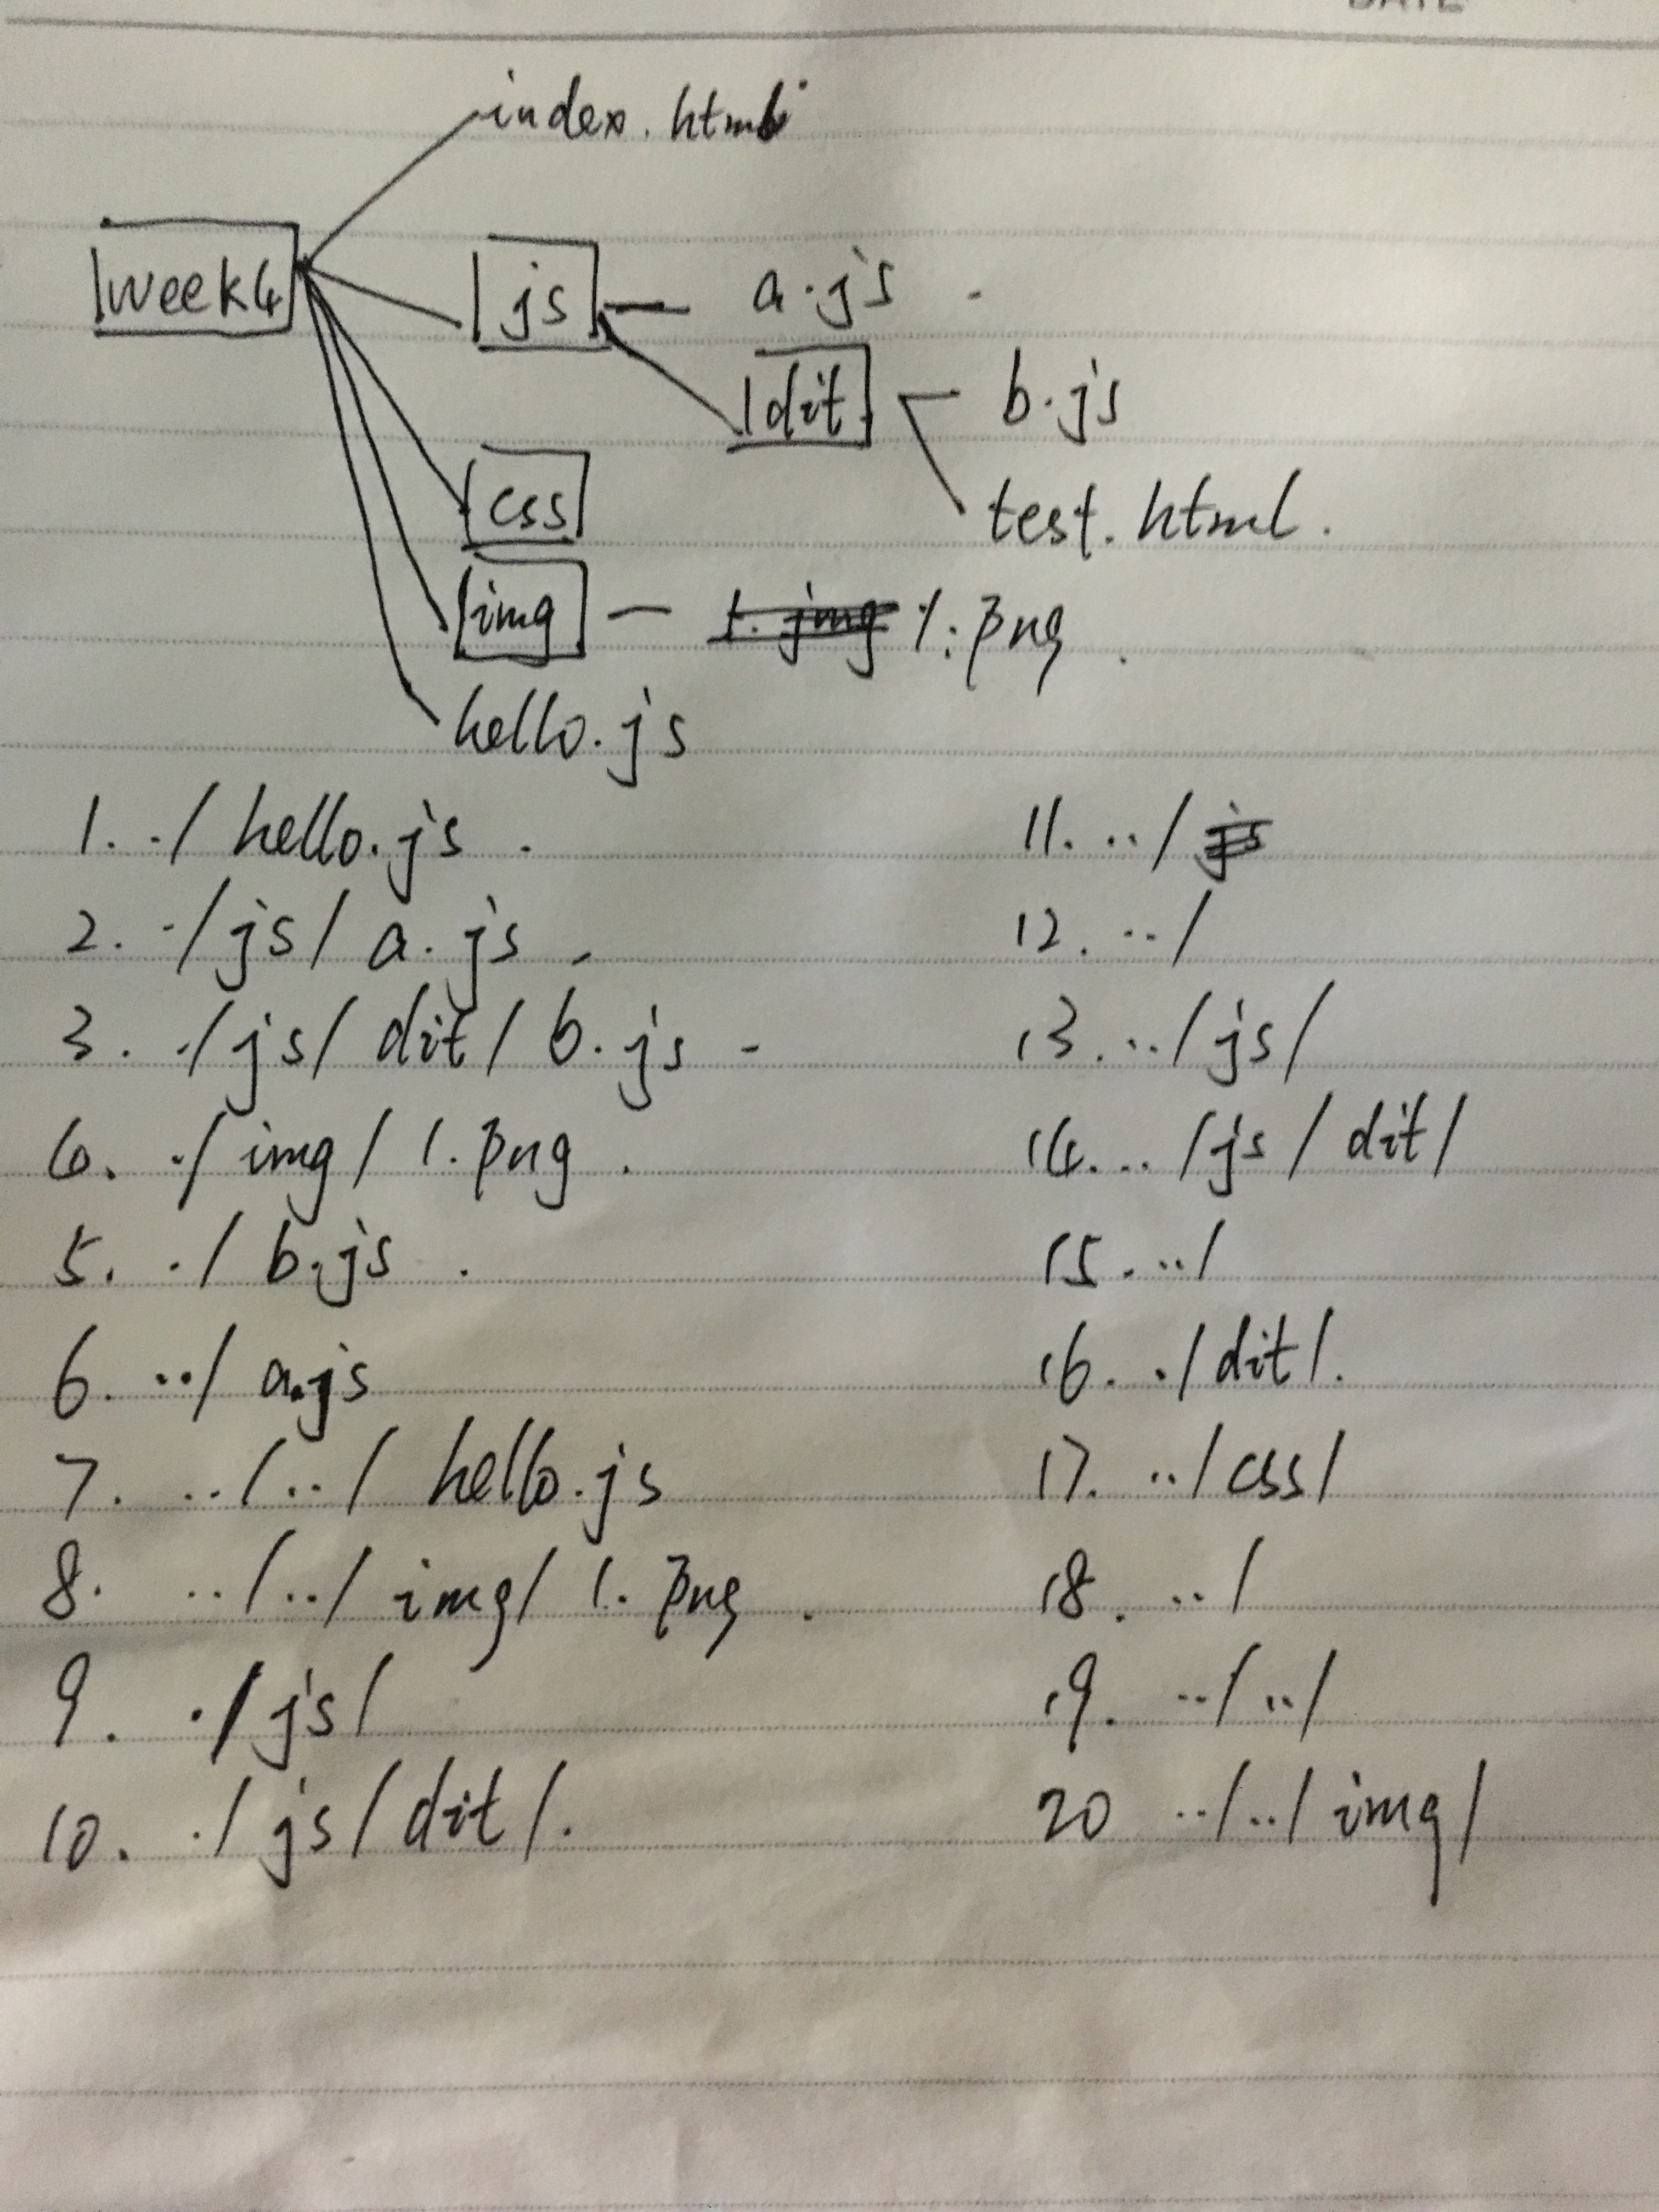 DATE
index.html
week4
js
a.js
dit
b.js
css
test.html.
img
1.png
hello.js
1. ./ hello.js .
2. ./js/ a.js
3. ./js/ dit/ b.js
4. ./ img/ 1.png .
5. ./ b.js .
6. ../ a.js
7. ../../ hello.js
8. ../../ img/ 1.png .
9. ./js/
10. ./js/dit/.
11. ../
12. ../
13. ../js/
14. ../js/dit/
15. ../
16. ./dit/.
17. ../css/
18. ../
19. ../../
20 ../../img/